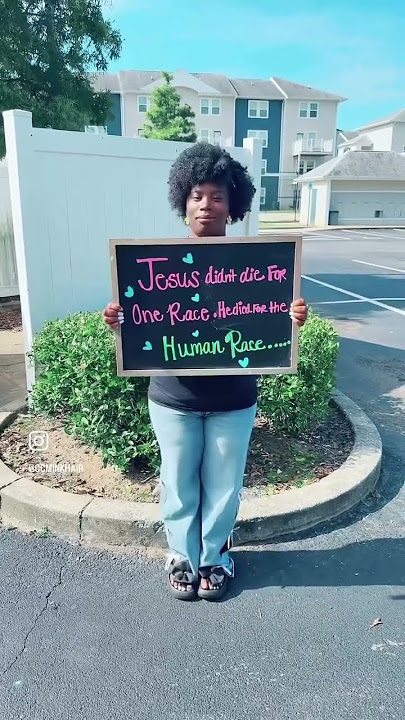 Jesus didn't die For
One Race . He died For the
Human Race.....
@CCMINKHAIR